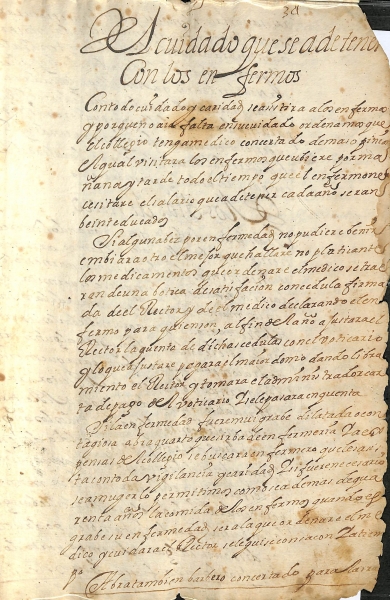 34
El cuidado que se a de tener
Con los enfermos
Con todo cuidado y caridad se asistira a los enfermos
y porque no aia falta en su cuidado ordenamos que
el collegio tenga medico concertado de mas opinion
el qual visitara los enfermos que ubiere por ma
ñana y tarde todo el tiempo que el enfermo ne
cesitare el salario que a de tener cada año seran
beinte ducados
Si alguna bez por enfermedad no pudiere benir
embiara otro el mejor que hallare no platicante
los medicamentos que ordenare el medico se tra
ran de una botica de satisfacion con cedula firma
da de el Rector y del medico declarando el en
fermo para quien son, al fin de el año ajustara el
Rector la quenta de dichas cedulas con el voticario
y lo que se ajustare pagara el maiordomo dando libra
miento el Rector y tomara el administrador car
ta de pago de el voticario y se le pasara en quenta
Si la enfermedad fuere mui grabe dilatada o con
tagiosa abra quarto que sirba de enfermeria y a es
pensas de el collegio se buscara enfermero que les asis
ta con toda vigilancia y caridad, y si fuere necesario
sea muger lo permitimos como sea de mas de qua
renta años la comida de los enfermos quando es
grabe su enfermedad sera la que ordenare el me
dico y cuidara el Rector se le guise con sazon y a tiem
po
Abra tambien barbero concertado para